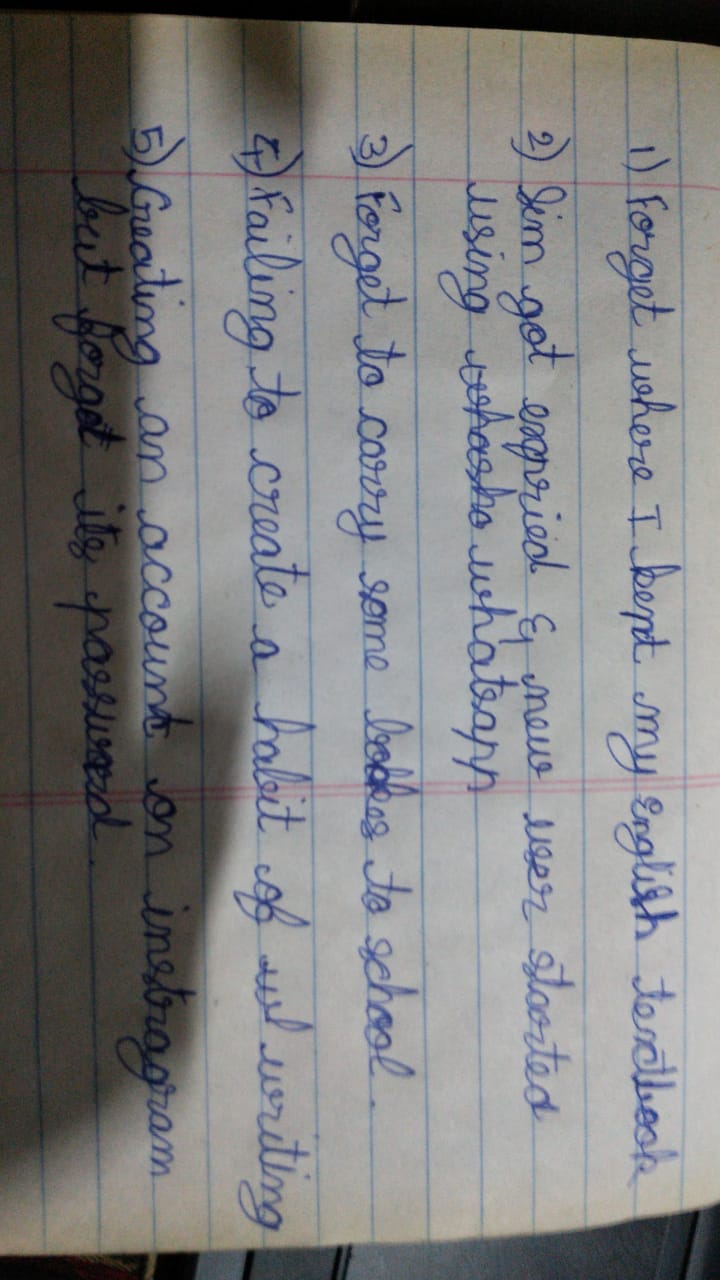 1) Forget where I kept my english textbook
2) Sim got expried & new user started
using whatsapp
3) Forget to carry some books to school.
4) Failing to create a habit of writing
5) Creating an account on instragram
but forgot its password.